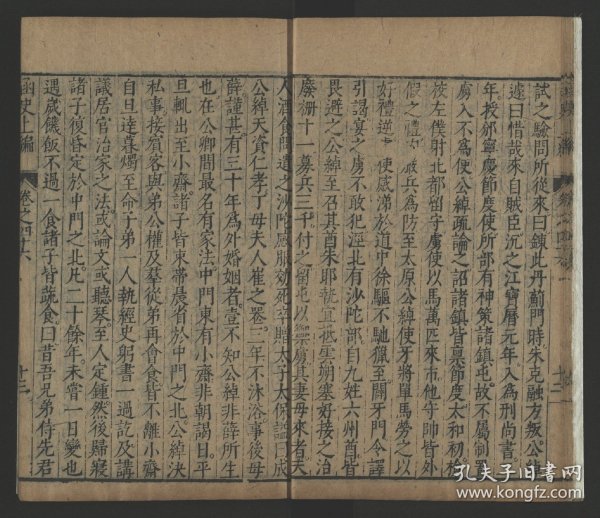 試之驗問所從來曰鍊此丹薊門時朱克融方叛公綽
遽曰惜哉來自賊臣沉之江寶曆元年入為刑尚書
年授邠寧慶節度使所部有神策諸鎮屯故不屬制
虜入不為便公綽疏論之詔諸鎮皆稟節度太和初
校左僕射北都留守虜使以馬萬匹來市他守帥皆外
假之禮 嚴兵為防至太原公綽使牙將單馬勞之以
好禮逆 使感涕於道中徐驅不馳獵至闢牙門令譯
引謁宴之虜不敢犯陘北有沙陀部自九姓六州皆
畏避之公綽至召其酋朱耶執宜 雲朔塞好接之治
廢柵十一募兵三千付之留屯以 其妻母來者夫
人酒食問遺之沙陀感服効死卒贈太子太保謚曰成
公綽天資仁孝丁母夫人崔之喪三年不沐浴事後母
薛謹甚有三十年為外婚姻者壹不知公綽非薛所生
也在公卿間最名有家法中門東有小齋非朝謁日平
旦輒出至小齋諸子皆束帶晨省於中門之北公綽決
私事接賓客與弟公權及羣從弟再會食皆不離小齋
自旦達暮燭至命子弟一人執經史躬書一過訖及講
議居官治家之法或論文或聽琴至人定鍾然後歸寢
諸子復昏定於中門之北凡二十餘年未嘗一日變也
遇歲饑飯不過一食諸子皆蔬食曰昔吾兄弟侍先君
函史上編
卷之四十六
十三
孔夫子旧书网
www.kongfz.com